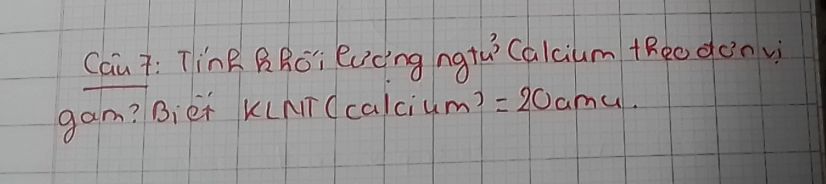 Câu 7: Tính khối lượng ngtử Calcium theo đơn vị
gam? Biết KLNT (calcium) = 20amu.